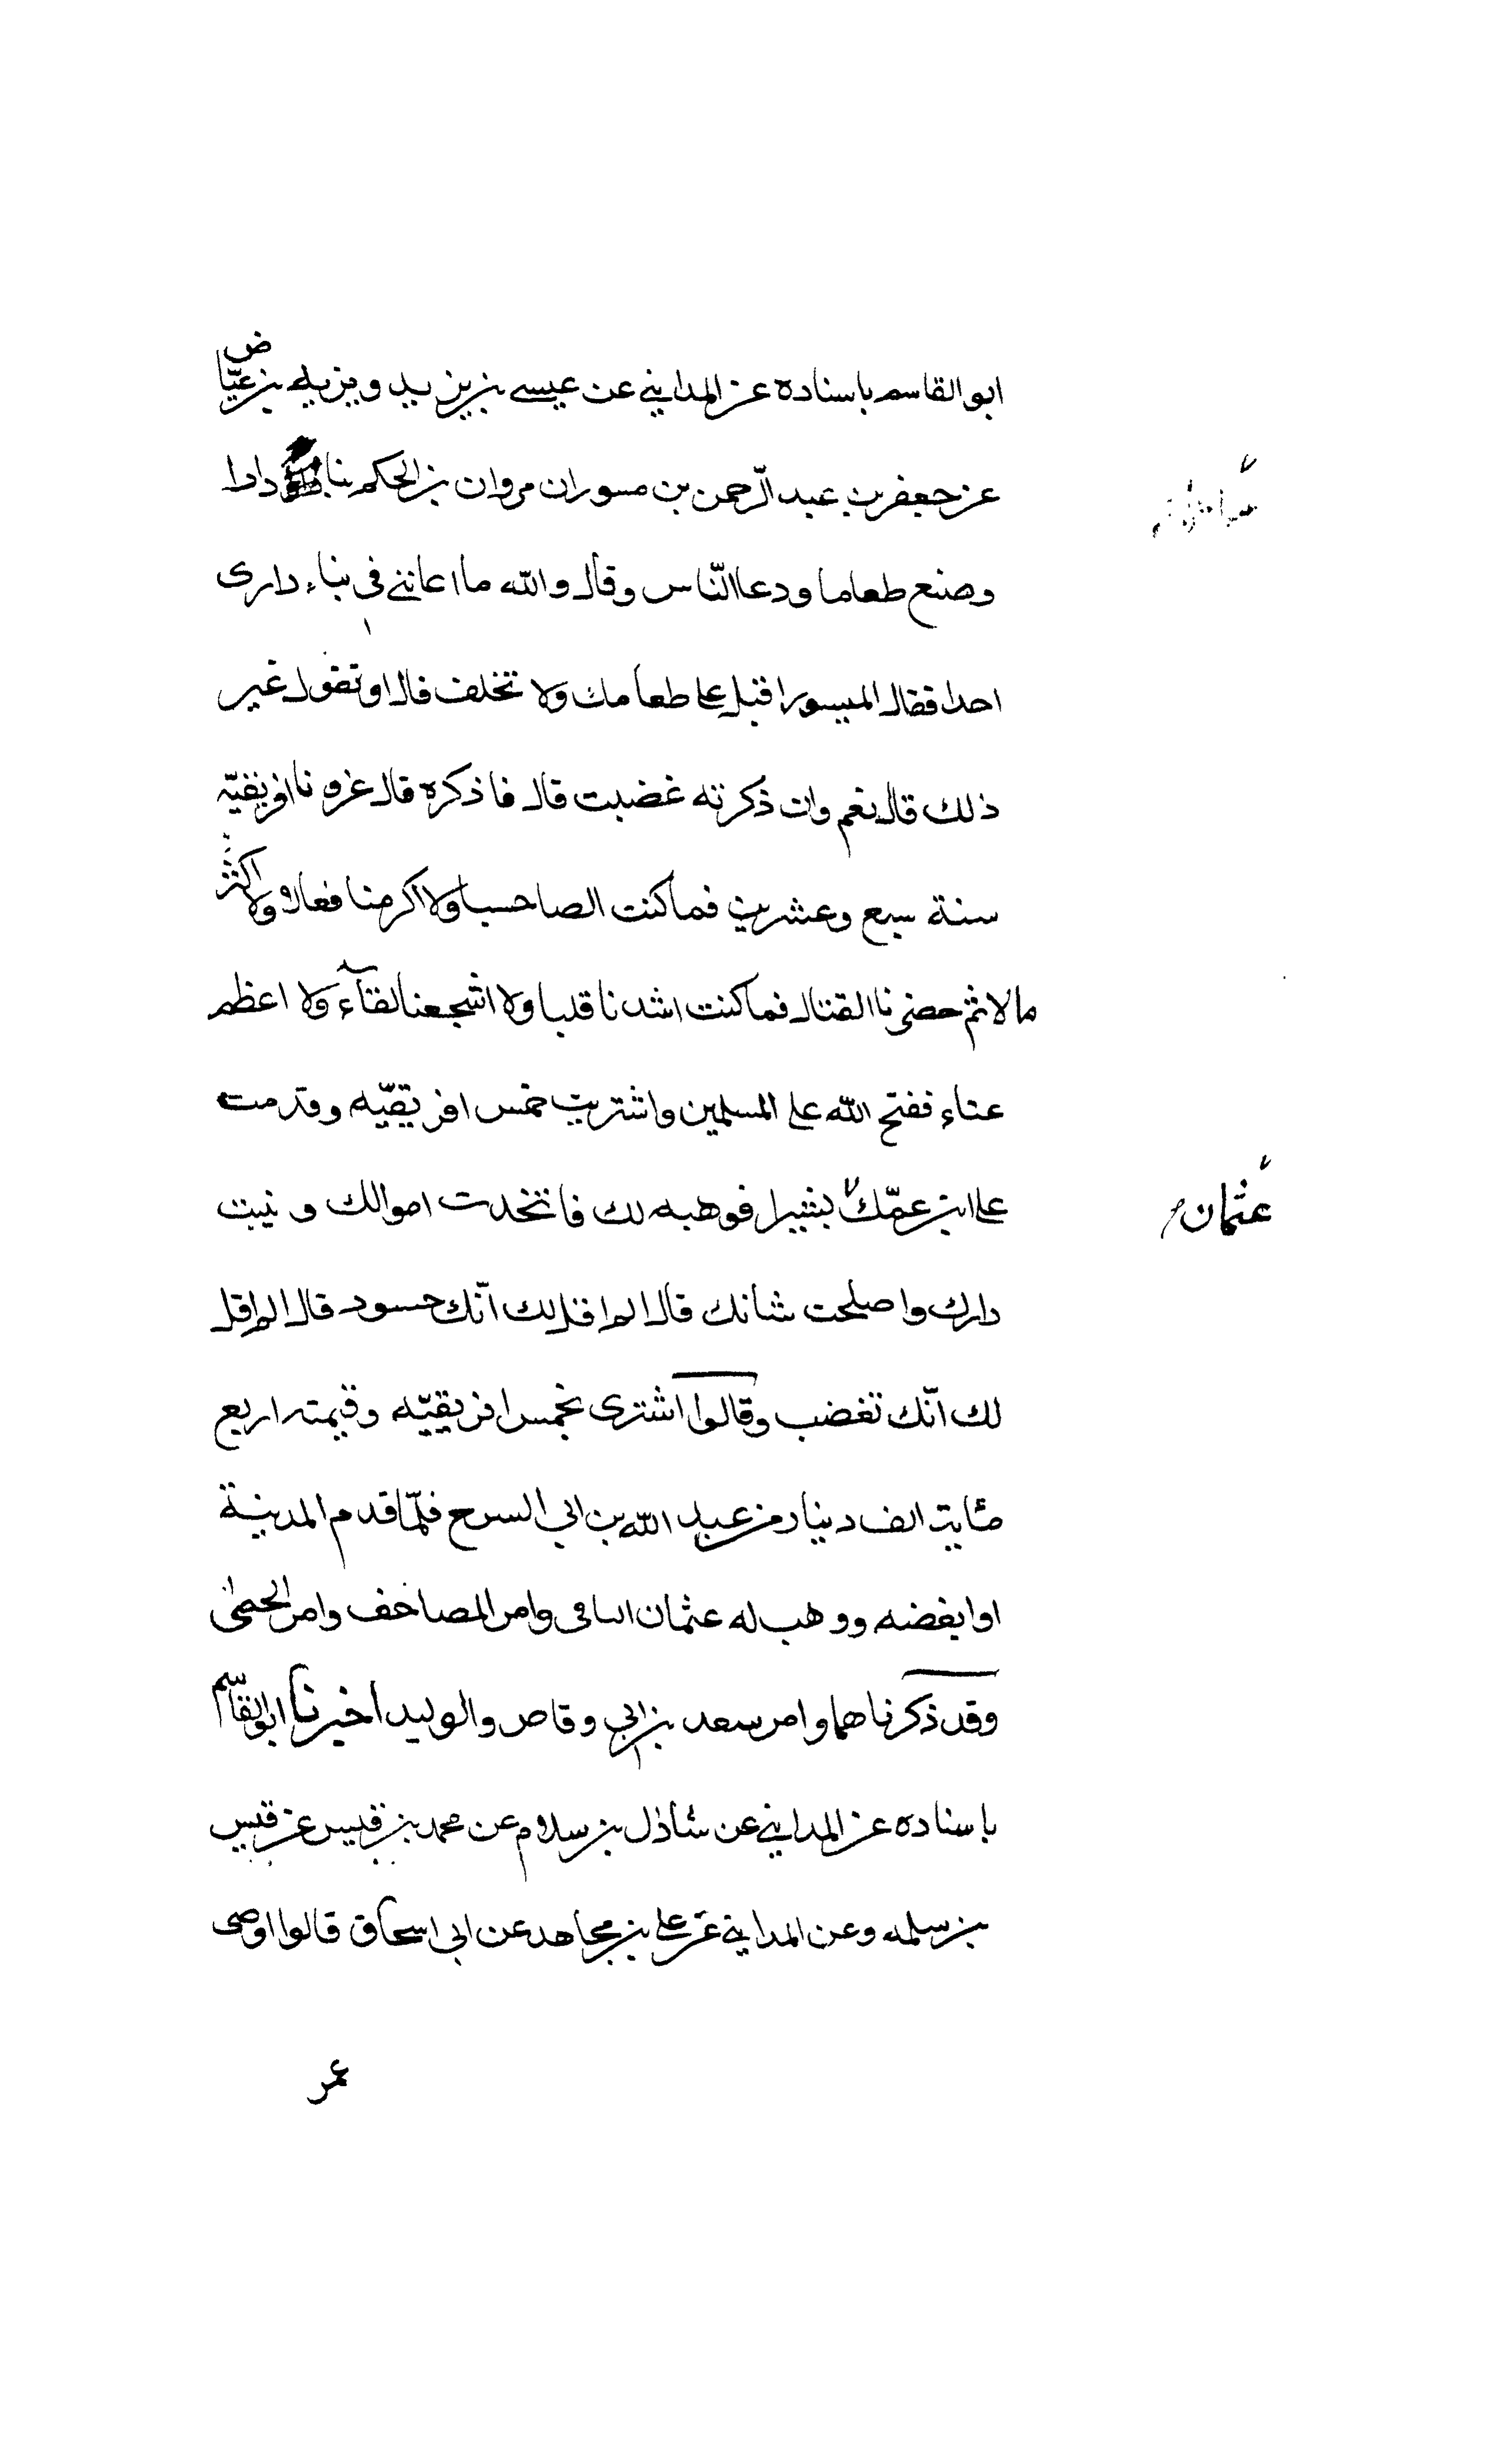 ابو القاسم باسناده عن المدايني عن عيسى بن يزيد ويزيد بن عيّاض
عن جعفر بن عبد الرّحمن بن مسور ان مروان بن الحكم بنا دارا
وصنع طعاما ودعا النّاس وقال والله ما اعانني في بناء داري
احدا فقال الميسور اقبل على طعامك ولا تخلف قال او تقول غير
ذلك قال نعم وان ذكرته غضبت قال فاذكره قال غزونا افريقيّه
سنة سبع وعشرين فما كنت الصا حسبا ولا اكرمنا فعالا ولا اكثر
مالا ثم حضرنا القتال فما كنت اشدنا قلبا ولا اشجعنا لقآء ولا اعظم
عناء ففتح الله على المسلمين واشتريت خمس افريقيّه وقدمت
على ابن عمّك بشيرا فوهبه لك فاتخدت اموالك و نيبت
عثمان
دارك واصلحت شانك قال الم اقل لك انّك حسود قال الم اقل
لك انّك تغضب وقالوا اشترى بخمس افريقيّه وقيمته اربع
مئاية الف دينار من عبد الله بن ابي السرح فلمّا قدم المدينة
اوا بغضه ووهب له عثمان الباقى وامر المصاحف وامر الحمى
وقد ذكرناهما وامر سعد بن ابي وقاص والوليد اخبرنا ابو القاسم
باسناده عن المدايني عن بن سلام عن محمد بن قيس عن قيس
بن سلمه وعن المدايني عن علي بن مجاهد عن ابي اسحاق قالوا اوصى
عمر